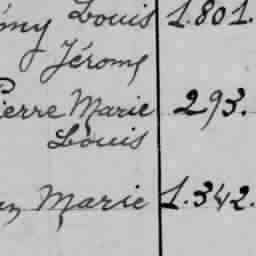 Louis 1.801.
Jérome
Pierre Marie 293.
Louis
Marie 1.342.